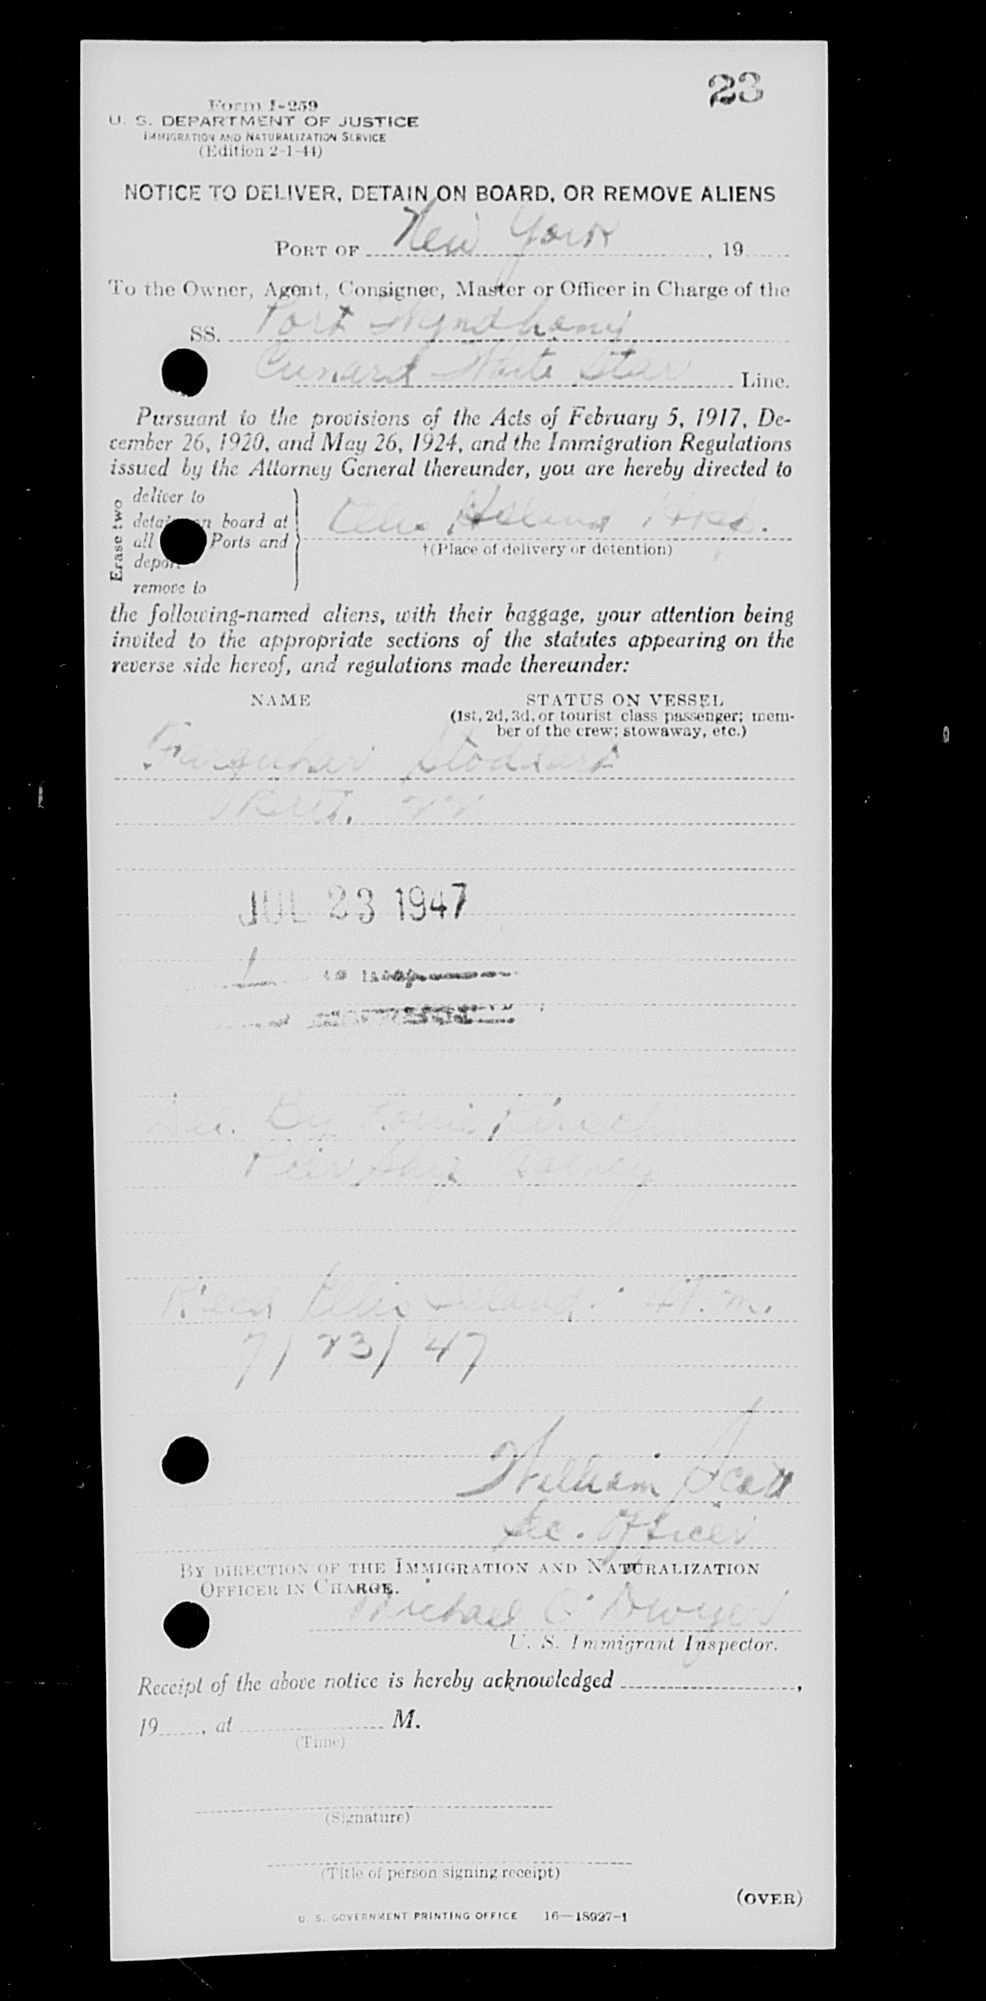 23
Form I-259
U. S. DEPARTMENT OF JUSTICE
IMMIGRATION AND NATURALIZATION SERVICE
(Edition 2-1-44)
NOTICE TO DELIVER, DETAIN ON BOARD, OR REMOVE ALIENS
PORT OF New York, 19
To the Owner, Agent, Consignee, Master or Officer in Charge of the
SS. Port Wyndham
Cunard White Star Line.
Pursuant to the provisions of the Acts of February 5, 1917, De-
cember 26, 1920, and May 26, 1924, and the Immigration Regulations
issued by the Attorney General thereunder, you are hereby directed to
Erase two
deliver to
detain on board at
all Ports and
deport
remove to
Ellis Island Hosp.
†(Place of delivery or detention)
the following-named aliens, with their baggage, your attention being
invited to the appropriate sections of the statutes appearing on the
reverse side hereof, and regulations made thereunder:
NAME
STATUS ON VESSEL
(1st, 2d, 3d, or tourist class passenger; mem-
ber of the crew; stowaway, etc.)
Farquhar Stoddart
Brit.
JUL 23 1947
By
Agency
Rec'd Ellis Island.
7/23/47
William Scott
Officer
BY DIRECTION OF THE IMMIGRATION AND NATURALIZATION
OFFICER IN CHARGE.
Michael O'Dwyer
U. S. Immigrant Inspector.
Receipt of the above notice is hereby acknowledged ,
19 , at M.
(Time)
(Signature)
(Title of person signing receipt)
(OVER)
U. S. GOVERNMENT PRINTING OFFICE 16—18927-1